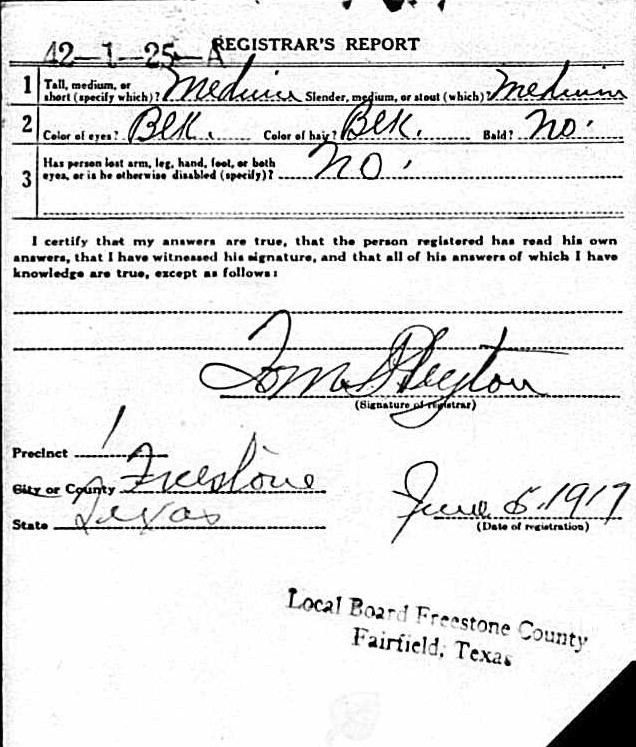 42-1-25-A REGISTRAR'S REPORT
1 Tall, medium, or short (specify which)? Medium Slender, medium, or stout (which)? Medium
2 Color of eyes? Blk. Color of hair? Blk. Bald? No.
3 Has person lost arm, leg, hand, foot, or both
eyes, or is he otherwise disabled (specify)? No.
I certify that my answers are true, that the person registered has read his own
answers, that I have witnessed his signature, and that all of his answers of which I have
knowledge are true, except as follows:
Tom
(Signature of registrar)
Precinct 1
City or County Freestone
State Texas
June 5, 1917
(Date of registration)
Local Board Freestone County
Fairfield, Texas